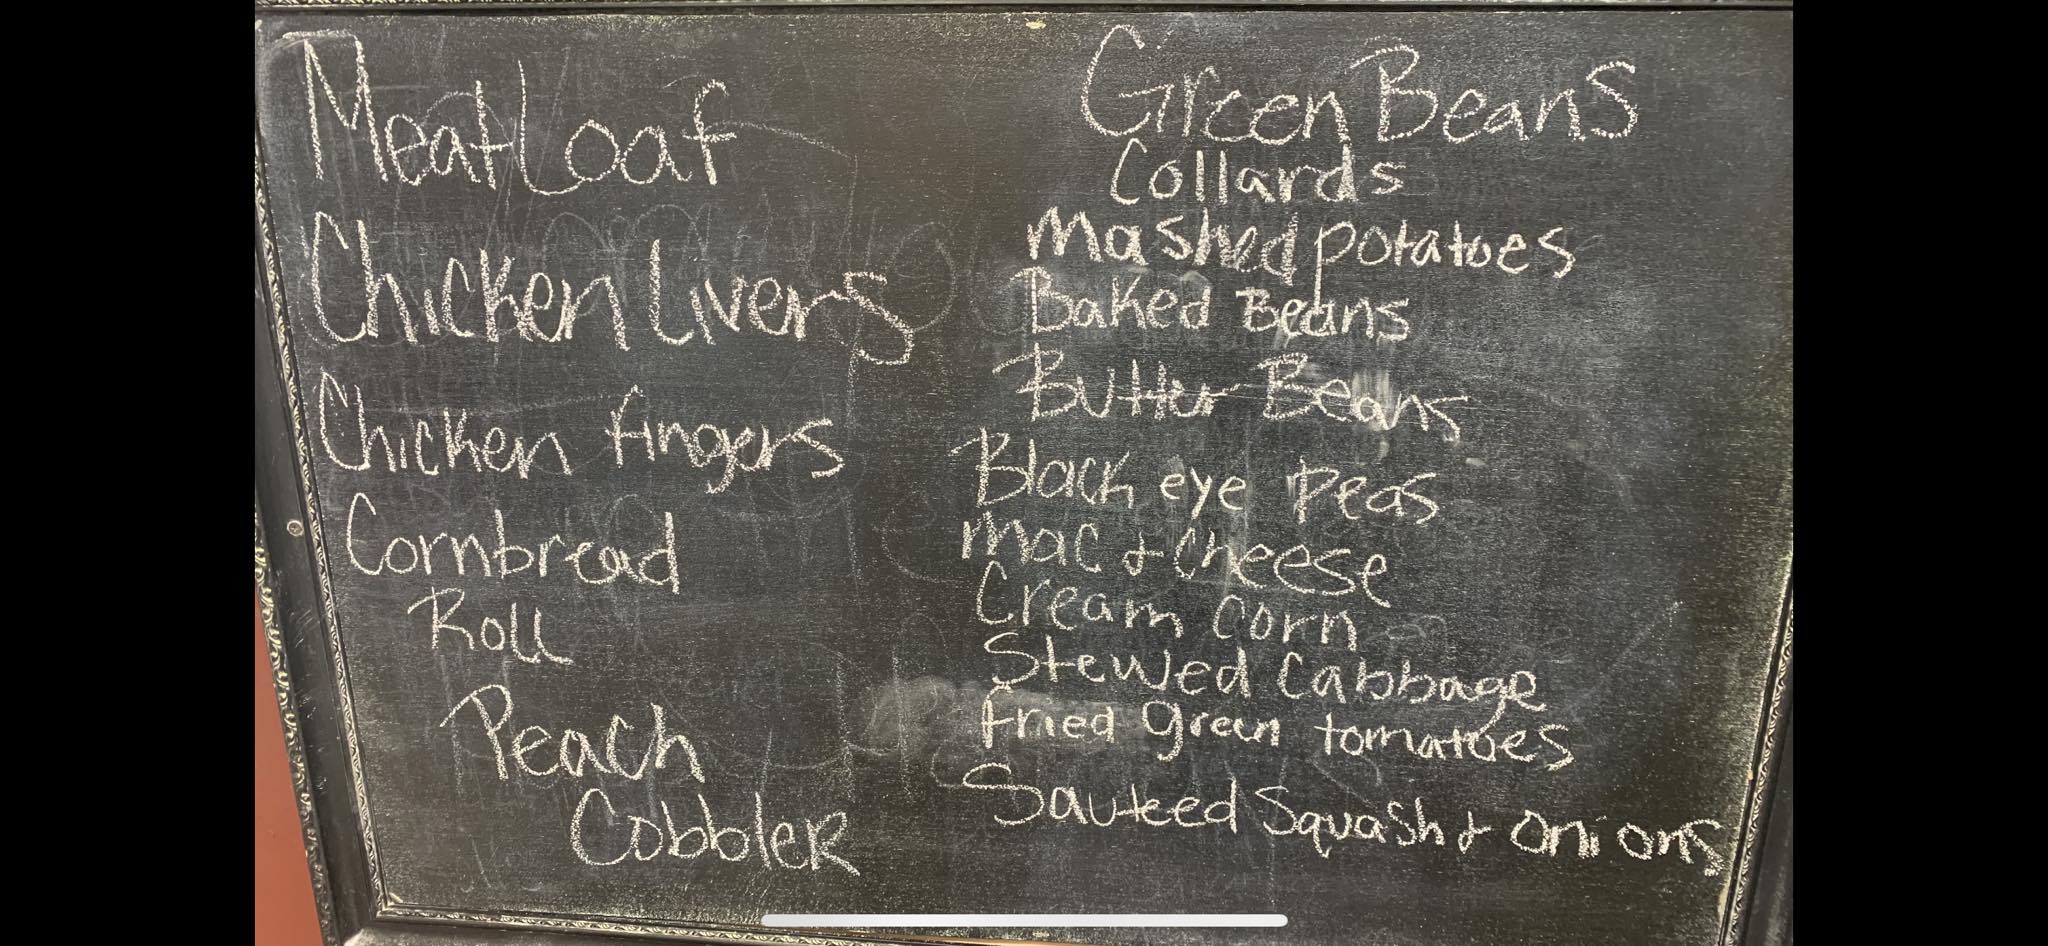 MeatLoaf
Chicken Livers
Chicken fingers
Cornbread
Roll
Peach
Cobbler
Green Beans
Collards
Mashed potatoes
Baked Beans
Butter Beans
Black eye Peas
Mac & Cheese
Cream Corn
Stewed Cabbage
fried green tomatoes
Sauteed Squash & Onions